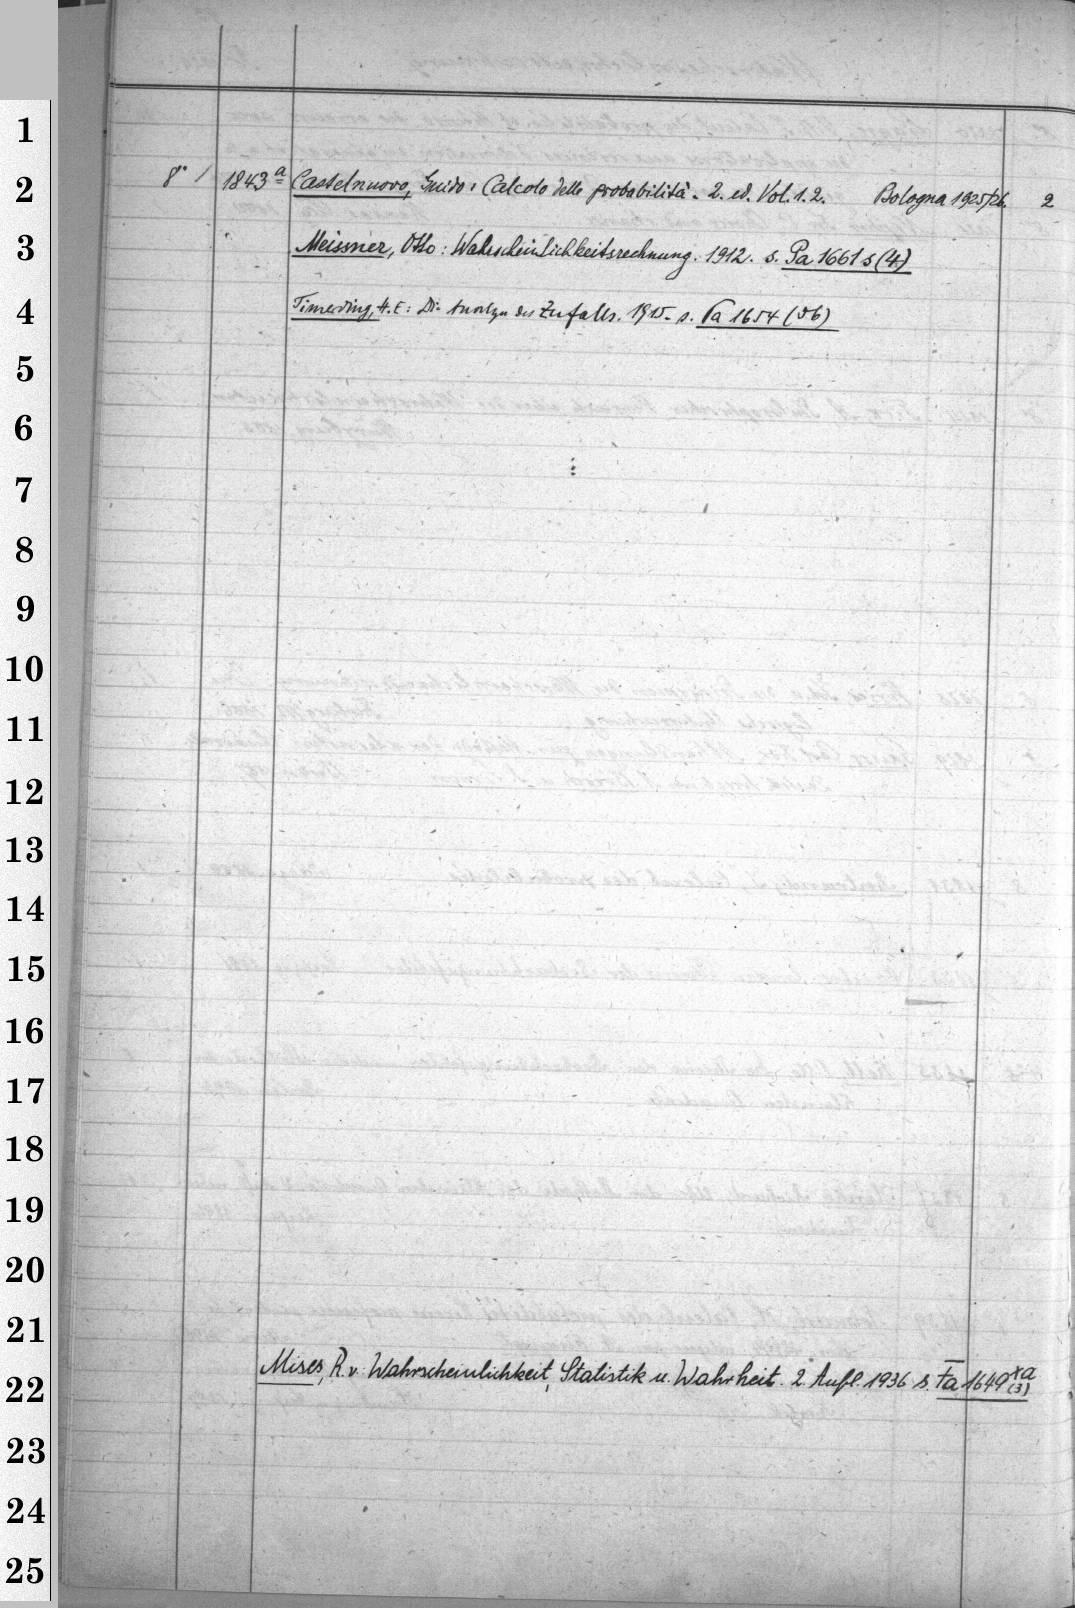 1
2
3
4
5
6
7
8
9
10
11
12
13
14
15
16
17
18
19
20
21
22
23
24
25
8° / 1843ª Castelnuovo, Guido: Calcolo delle probabilità. 2. ed. Vol. 1.2. Bologna 1925/26. 2
Meissner, Otto: Wahrscheinlichkeitsrechnung. 1912. s. Pa 1661 s (4)
Timerding, H. E.: Die Analyse des Zufalls. 1915. s. Pa 1654 (56)
Mises, R. v. Wahrscheinlichkeit, Statistik u. Wahrheit. 2. Aufl. 1936 s. Fa 1649 xa (3)